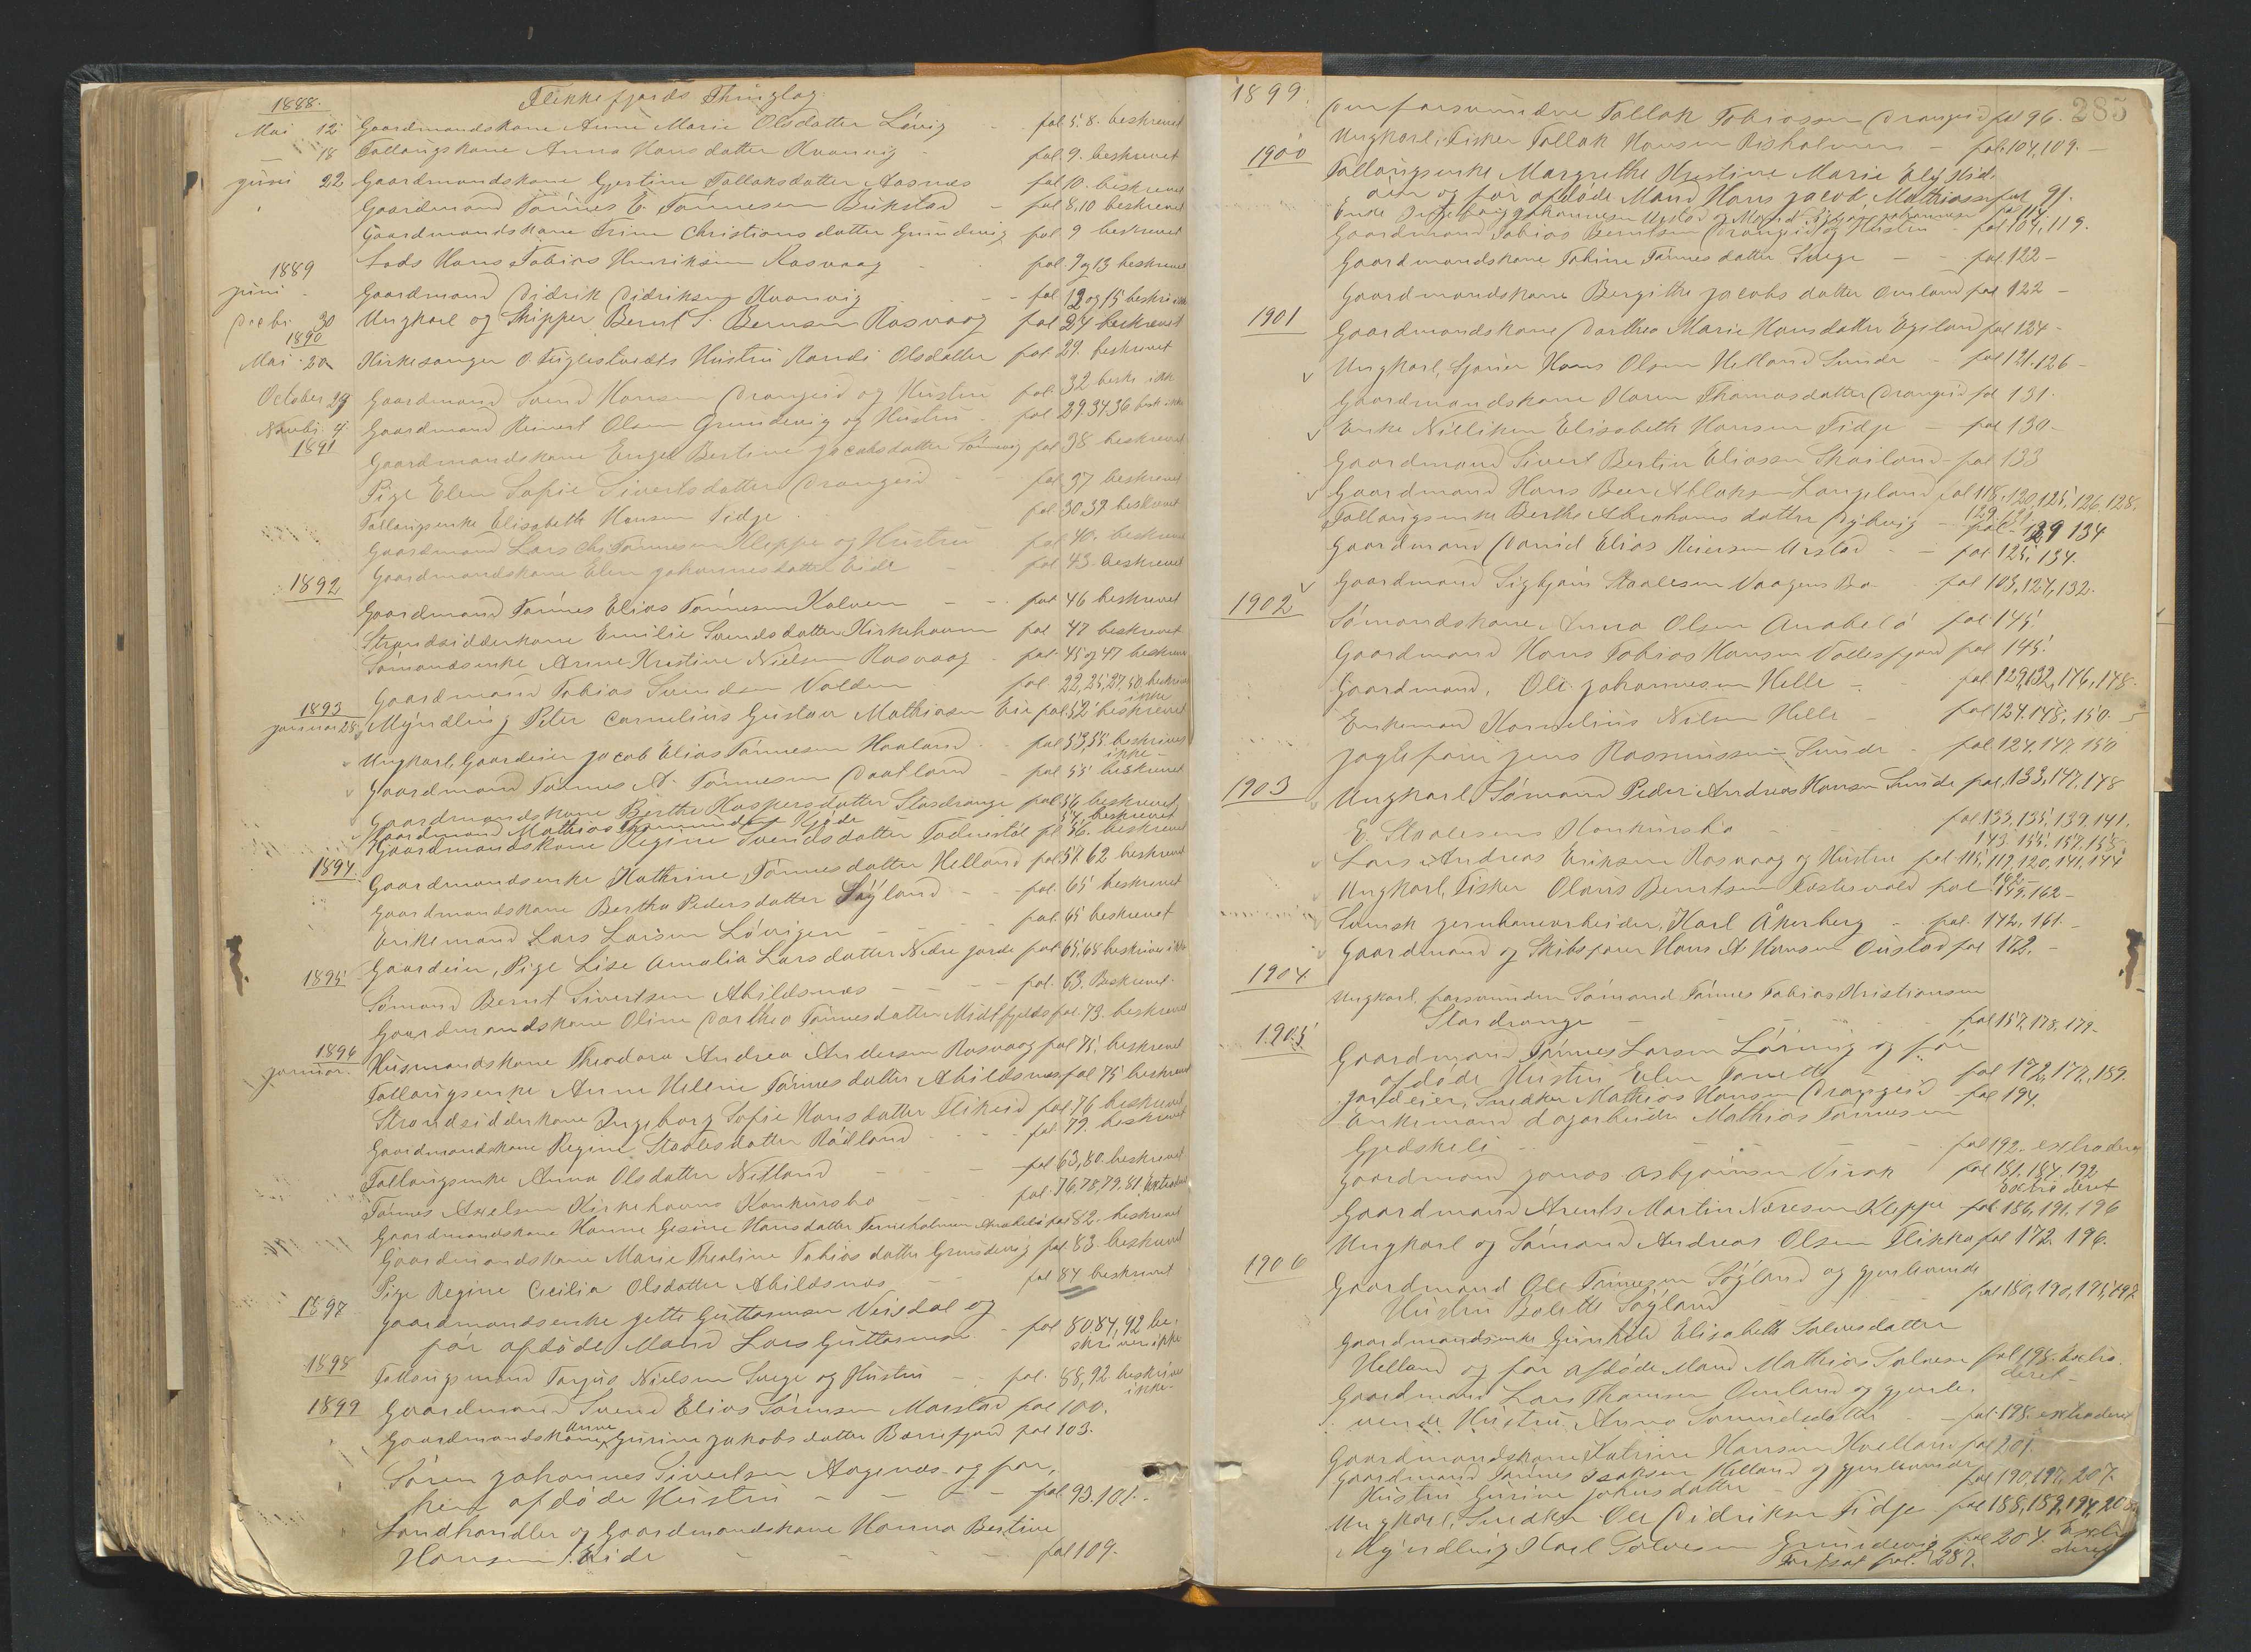 1888. Flekkefjords Thinglag.
Mai 12 Gaardmandskone Anne Marie Olsdatter Løvig fol 5. 8. beskrevet
— 18 Fattigskone Anna Hansdatter Kvanvig fol. 9. beskrevet
Juni 22 Gaardmandskone Gjertine Tallaksdatter Aasnæs fol 10. beskrevet
Gaardmand Tønnes E. Tønnesen Birkeland fol 8, 10 beskrevet
Gaardmandskone Trine Christiansdatter Grundevig fol 9 beskrevet
1889 Lods Hans Tobias Henriksen Rasvaag fol. 9 og 13 beskrevet
Juni Gaardmand Didrik Didriksen Kvanvig - fol 12 og 15 beskr. ikke
Decbr. 30 Ungkarl og Skipper Bernt S. Bernsen Rasvaag fol 24 beskrevet
1890
Mai 20 Kirkesanger O. Fuglestvedts Hustru Randi Olsdatter fol 29. beskrevet
October 29 Gaardmand Svend Hansen Drangeid og Hustru fol. 32 beskr. ikke
Novbr. 4 Gaardmand Reinert Olsen Grundevig og Hustru fol 29. 34. 36 besk. ikke
1891 Gaardmandskone Engel Bertine Jacobsdatter fol 38 beskrevet
Pige Elen Sofie Sivertsdatter Drangeid fol 37 beskrevet
Fattigenke Elisabeth Hansen Fidje fol 30. 39 beskrevet
Gaardmand Lars Chr. Tønnesen Kleppe og Hustru fol 40. beskrevet
Gaardmandskone Elen Johannesdatter Eide fol 43. beskrevet
1892 Gaardmand Tønnes Elias Tønnesen Kalven - - fol 46 beskrevet
Strandsidderkone Emilie Svendsdatter Kirkehavn fol 47 beskrevet
Sømandsenke Anne Kristine Nielsen Rasvaag fol. 45 og 47 beskrevet
Gaardmand Tobias Svendsen Valdem fol. 22, 25, 27, 50 beskrevet ikke
1893
Januar 28. Myndling Peter Cornelius Gustav Mathiasen Eie fol 52 beskrevet
v Ungkarl, Gaardeier Jacob Elias Tønnesen Haaland fol 53, 55. beskrives ikke
v Gaardmand Tønnes A. Tønnesen Daatland fol 55 beskrevet
v Gaardmandskone Berthe Kaspersdatter Stordrange fol 56 beskrevet
v Gaardmand Mathias 54 beskrevet
Gaardmandskone Regine Svendsdatter fol 56. beskrevet
1894 Gaardmandsenke Kathrine Tønnesdatter Helland fol 57. 62 beskrevet
Gaardmandskone Bertha Pedersdatter Søyland - fol. 65 beskrevet
Enkemand Lars Larsen Løvigen - fol. 65 beskrevet
Gaardeier, Pige Lise Amalia Larsdatter Nedre Jørde fol 65. 68 beskrives ikke
1895 Sømand Bernt Sivertsen Abildsnæs - - - fol. 63. Beskrevet.
Gaardmandskone Oline Dorthea Tønnesdatter Midtfjeld fol 73. beskrevet
1896
Januar. Husmandskone Theodora Andrea Andersen Rasvaag fol 75. beskrevet
Fattigenke Anne Helene Tønnesdatter Abildsnæs fol 75 beskrevet
Strandsidderkone Ingeborg Sofie Hansdatter Flikeid fol 76 beskrevet
Gaardmandskone Regine Staalesdatter Rødland - - fol 79. beskrevet
Fattigenke Anna Olsdatter Netland - - fol 63, 80. beskrevet
Tønnes Axelsen Kirkehavn Konkursbo - - fol. 76, 78, 79. 81. extraderet
Gaardmandskone Hanne Gesine Hansdatter Anabelø fol 82. beskrevet
Gaardmandskone Marie Theoline Tobiasdatter Grundevig fol. 83. beskrevet
Pige Regine Cecilia Olsdatter Abildsnæs - fol 84 beskrevet
1897 Gaardmandsenke Jette Guttormsen Veisdal og
for afdøde Mand Lars Guttormsen - fol 80. 84, 92 beskrives ikke
1898 Fattigmand Tarjus Nielsen Svege og Hustru - fol. 88, 92. beskrives ikke
1899 Gaardmand Svend Elias Sørensen Marstad fol 100.
Gaardmandskone Anne Gurine Jakobsdatter Børrefjord fol 103.
Søren Johannes Sivertsen Aagenæs og for
hen afdøde Hustru - - - - fol 93. 101.-
Landhandler og Gaardmandskone Hanna Bertine
Hansen Eide - - - - fol 109.
285
1899. Den forsvundne Tallak Tobiassen Drangeid fol 96.
Ungkarl, Fisker Tallak Hansen Risholmen - fol. 104, 109. -
1900 Fattigenke Margrethe Kristine Marie
og for afdøde Mand Hans Jacob Mathiassen fol 91.
Enke Ingeborg Johannesen Urstad og Mand fol 114.
Gaardmand Tobias Berntsen Drangeid og Hustru - fol 104, 119.
Gaardmandskone Tobine Tønnesdatter Svege - - fol. 122 -
Gaardmandskone Bergithe Jacobsdatter Omland fol 122 -
1901 Gaardmandskone Dorthea Marie Hansdatter Egeland fol 124 -
v Ungkarl, Hans Olsen Helland Sunde - fol 121. 126 -
Gaardmandskone Karen Thomasdatter Drangeid fol 131.
v Enke Nilliken Elisabeth Hansen Fidje - fol 130 -
Gaardmand Sivert Bertin Eliassen Skailand - fol 133
v Gaardmand Hans Langeland fol 118, 120, 125, 126, 128,
129, 131
Fattigenke Berthe Abrahamsdatter Dybvig - fol. 129 134
Gaardmand David Elias Reiersen Urstad - - fol 125, 134.
v Gaardmand Sigbjørn Staalesen Vaagens Bo - fol 103, 127, 132.
1902 Sømandskone Anna Olsen Anabelø fol 145.
Gaardmand Hans Tobias Hansen Vollesfjord fol 145.
Gaardmand, Ole Johannesen Helle - - fol 129, 132, 146, 148.
Enkemand Kornelius Nilsen Helle - fol 124. 148, 150. -
Jagtefører Jens Rasmussen Sunde - fol. 124, 147, 150
1903 v Ungkarl Sømand Peder Andreas Hansen Sunde fol. 133, 147, 148
E. Staalesens Konkursbo - - fol. 133, 135, 139, 141,
143. 155, 157, 158,
v Lars Andreas Eriksen Rasvaag og Hustru fol 115, 119, 120, 141, 144
162
v Ungkarl, Fisker Olaus Berntsen fol 159, 162 -
v Svensk Jernbanearbeider, Karl Åkerberg - fol. 142, 161. -
v Gaardmand og Skibsfører Hans A. Hansen Oustad fol 172. -
1904 Ungkarl, forsvunden Sømand Tønnes Tobias Kristiansen
Stordrange - - - - fol 157, 178, 179 -
1905 Gaardmand Tønnes Larsen Løining og for
afdøde Hustru Elen - fol 172, 177, 189.
Jordeier, Snedker Mathias Hansen Drangeid - fol 194.
Enkemand dagarbeider Mathias Tønnesen
Gjedskeli - - - - fol 192. extraderet
Gaardmand Jonas Asbjørnsen Virak fol 181, 184, 192
extraderet
Gaardmand Arents Martin Kleppe fol 186, 191, 196
Ungkarl og Sømand Andreas Olsen Flikka fol 172. 196.
1906 Gaardmand Ole Tønnesen Søyland og gjenlevende
Hustru Bolette Søyland - - fol 180, 190, 195, 197
Gaardmandsenke Gunhild Elisabeth Salvesdatter
Helland og for afdøde Mand Mathias Salvesen fol 198. extraderet
Gaardmand Lars Thomsen Omland og gjenle-
vende Hustru Anna - fol. 198. extraderet
Gaardmandskone Katrine Hansen fol 201.
Gaardmand Tønnes Isaksen Helland og gjenlevende
Hustru Gurine - fol 190, 197, 207.
Ungkarl, Snedker Ole Didriksen Fidje fol 188, 189, 194, 20
Myndling Karl Salvesen Grundevig fol 204. extraderet
Fortsat fol. 287.